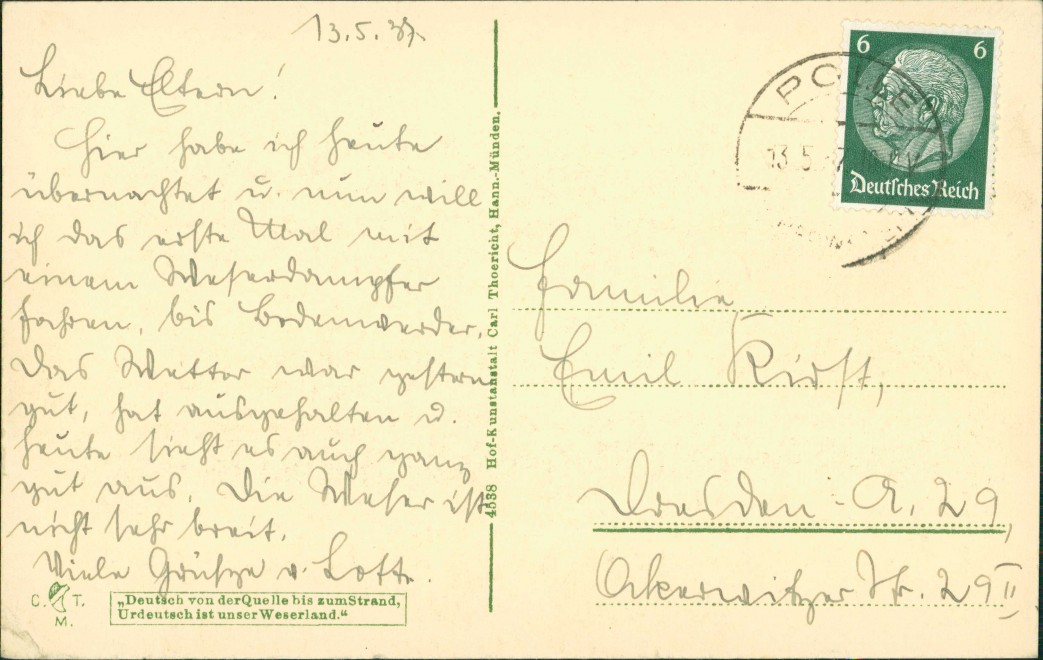 13.5.37
Liebe Eltern!
Hier habe ich heute
übernachtet u. nun will
ich das erste Mal mit
einem Weserdampfer
fahren, bis Bodenwerder.
Das Wetter war gestern
gut, hat ausgehalten u.
heute sieht es auch ganz
gut aus. Die Weser ist
nicht sehr breit.
Viele Grüße v. Lotte.
C. T.
M.
„Deutsch von der Quelle bis zum Strand,
Urdeutsch ist unser Weserland.“
4538 Hof-Kunstanstalt Carl Thoericht, Hann.-Münden.
6 6
Deutsches Reich
POLLE
13.5.37
Familie
Emil Kirst,
Dresden - A. 29,
Ockerwitzer Str. 29 II